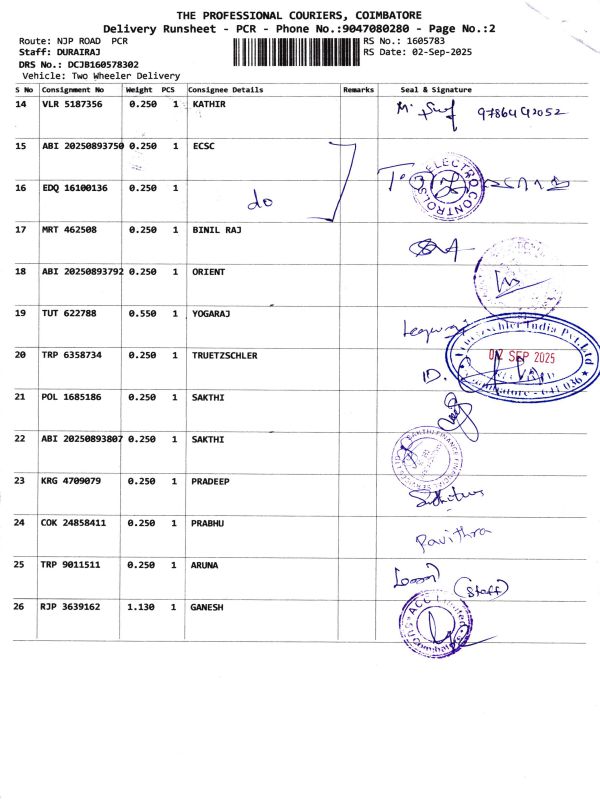 THE PROFESSIONAL COURIERS, COIMBATORE
Delivery Runsheet - PCR - Phone No.:9047080280 - Page No.:2
Route: NJP ROAD PCR
RS No.: 1605783
Staff: DURAIRAJ
RS Date: 02-Sep-2025
DRS No.: DCJB160578302
Vehicle: Two Wheeler Delivery
S No Consignment No Weight PCS Consignee Details Remarks Seal & Signature
14 VLR 5187356 0.250 1 KATHIR
15 ABI 20250893750 0.250 1 ECSC
ELECTRO CONTROLS
16 EDQ 16100136 0.250 1
do
17 MRT 462508 0.250 1 BINIL RAJ
18 ABI 20250893792 0.250 1 ORIENT
19 TUT 622788 0.550 1 YOGARAJ
India Pvt. Ltd
02 SEP 2025
Coimbatore - 641 036
20 TRP 6358734 0.250 1 TRUETZSCHLER
ID.
21 POL 1685186 0.250 1 SAKTHI
22 ABI 20250893807 0.250 1 SAKTHI
SAKTHI FINANCE FINANCIAL
23 KRG 4709079 0.250 1 PRADEEP
24 COK 24858411 0.250 1 PRABHU
Pavithra
25 TRP 9011511 0.250 1 ARUNA
(Staff)
26 RJP 3639162 1.130 1 GANESH
ACC Limited